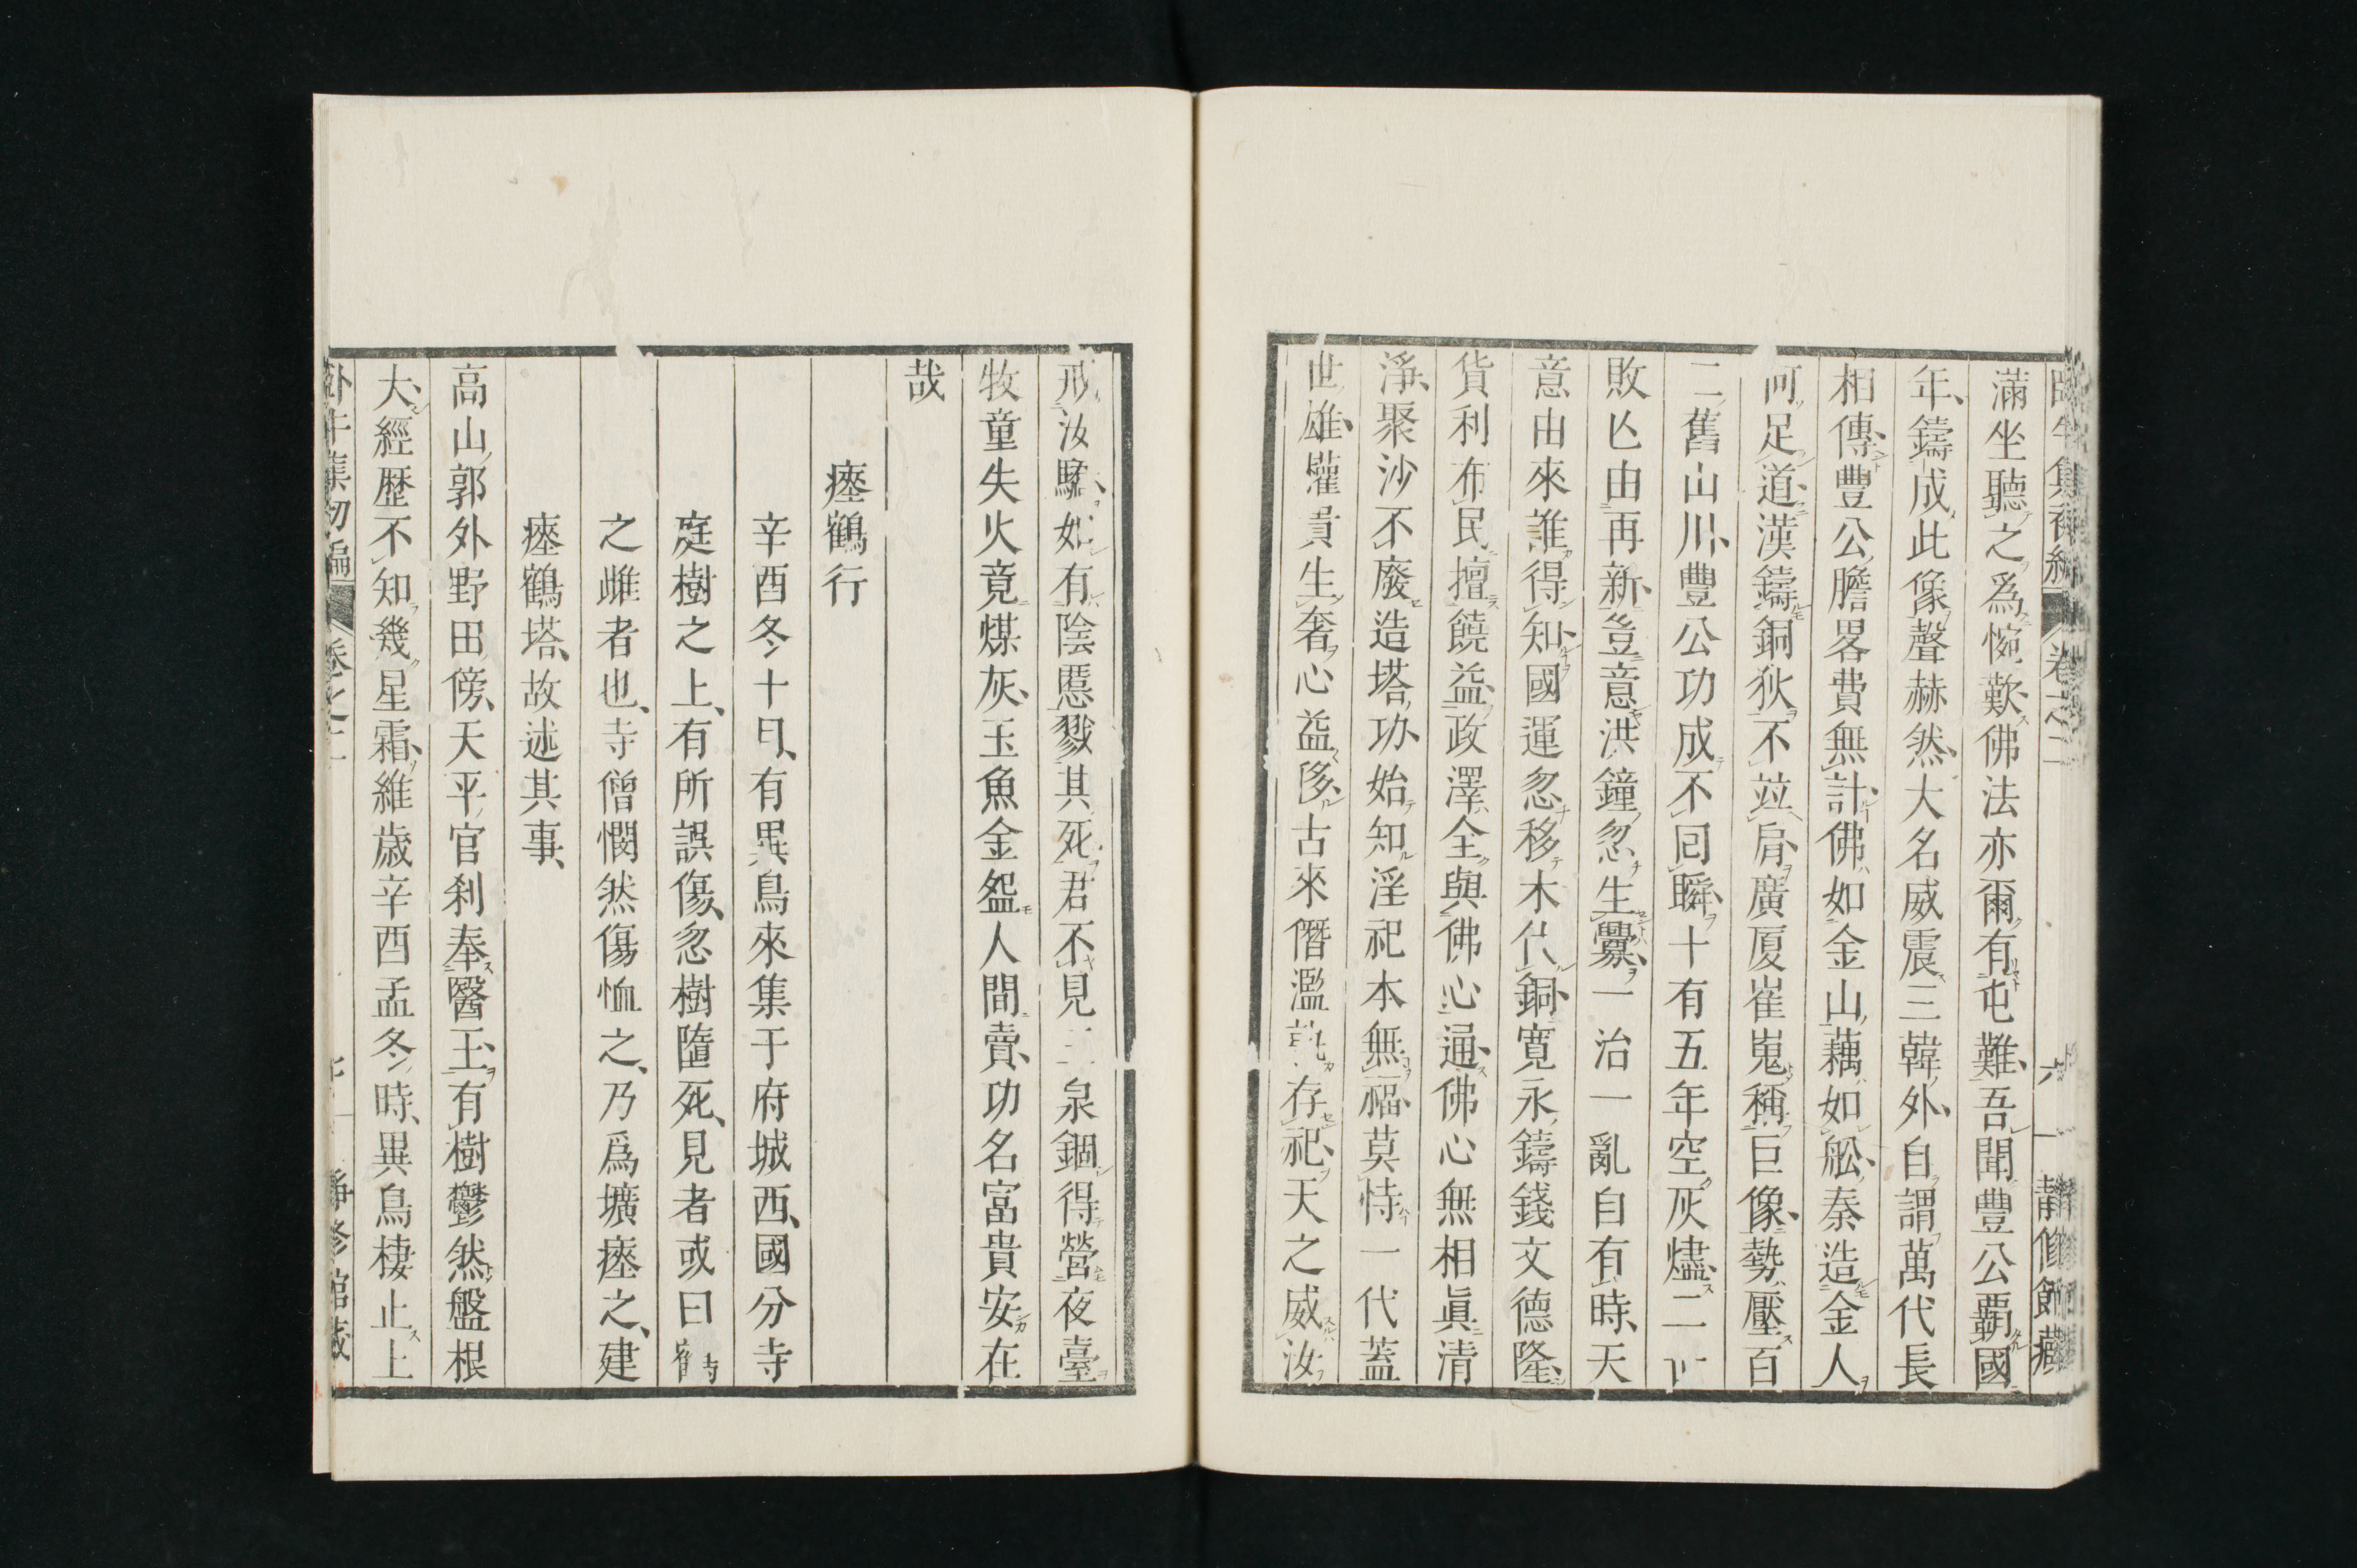 滿坐聽之爲惋歎佛法亦爾有屯難吾聞豐公覇國
年鑄成此像聲赫然大名威震三韓外自謂萬代長
相傳豐公膽畧費無計佛如金山藕如舩秦造金人
何足道漢鑄銅狄不竝肩廣厦崔嵬稱巨像勢壓百
二舊山川豐公功成不回瞬十有五年空灰燼二世
敗亾由再新豈意洪鐘忽生釁一治一亂自有時天
意由來誰得知國運忽移木代銅寛永鑄錢文德隆
貨利布民擅饒益政澤全與佛心通佛心無相眞清
淨聚沙不廢造塔功始知淫祀本無福莫恃一代蓋
世雄驩貴生奢心益侈古來僭濫存祀天之威汝
戒汝驕如有陰慝戮其死君不見三泉錮得營夜臺
牧童失火竟煤灰玉魚金盌人間賣功名富貴安在
哉
瘞鶴行
辛酉冬十月有異鳥來集于府城西國分寺
庭樹之上有所誤傷忽樹墮死見者或曰鶴
之雌者也寺僧憫然傷恤之乃爲壙瘞之建
瘞鶴塔故述其事
高山郭外野田傍天平官刹奉醫王有樹鬱然盤根
大經歷不知幾星霜維歲辛酉孟冬時異鳥棲止上
臥牛集初編 卷之二 靜修館藏